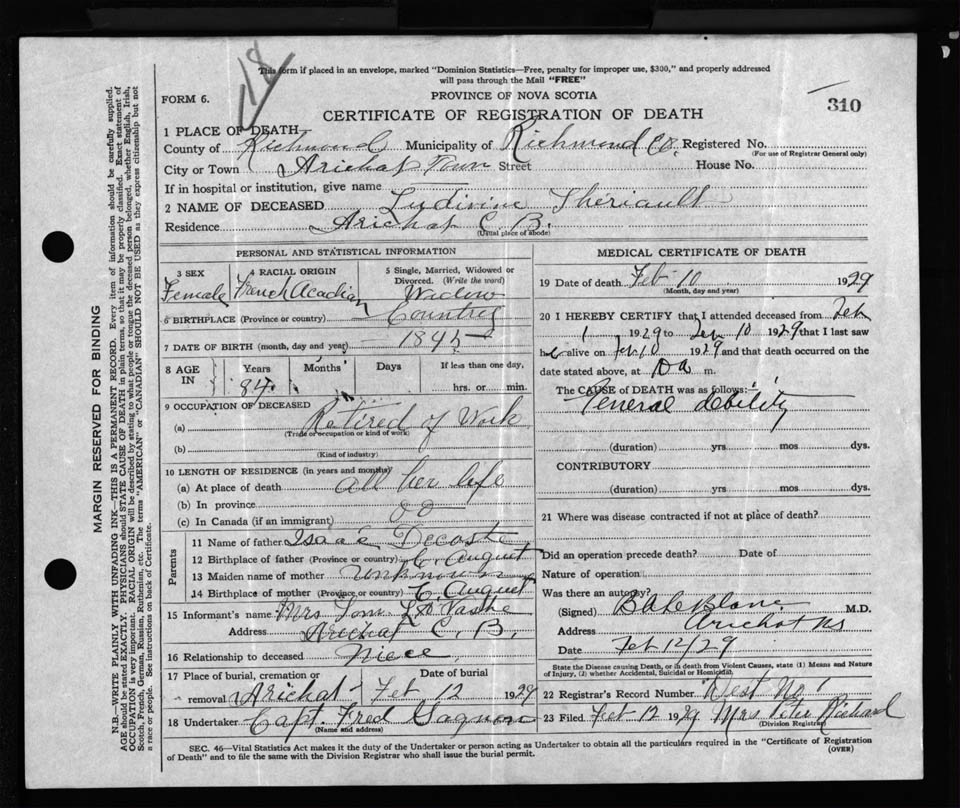 118
This form if placed in an envelope, marked "Dominion Statistics—Free, penalty for improper use, $300," and properly addressed
will pass through the Mail "FREE"
FORM 6.
PROVINCE OF NOVA SCOTIA
310
CERTIFICATE OF REGISTRATION OF DEATH
1 PLACE OF DEATH
County of Richmond Municipality of Richmond Co. Registered No.
(For use of Registrar General only)
City or Town Arichat Town Street House No.
If in hospital or institution, give name
2 NAME OF DECEASED Ludivine Theriault
Residence Arichat C. B.
(Usual place of abode)
PERSONAL AND STATISTICAL INFORMATION
3 SEX
Female
4 RACIAL ORIGIN
French Acadian
5 Single, Married, Widowed or
Divorced. (Write the word)
Widow
6 BIRTHPLACE (Province or country) Country
7 DATE OF BIRTH (month, day and year) 1845
8 AGE IN
Years Months Days If less than one day,
84 hrs. or min.
9 OCCUPATION OF DECEASED
(a) Retired of Work
(Trade or occupation or kind of work)
(b)
(Kind of industry)
10 LENGTH OF RESIDENCE (in years and months)
(a) At place of death all her life
(b) In province
(c) In Canada (if an immigrant)
Parents
11 Name of father Isaac Decoste
12 Birthplace of father (Province or country) C. August
13 Maiden name of mother unknown
14 Birthplace of mother (Province or country) C. August
15 Informant's name Mrs Tom
Address Arichat C. B.
16 Relationship to deceased Niece
17 Place of burial, cremation or Date of burial
removal Arichat Feb 12 1929
18 Undertaker Capt. Fred Gagnon
(Name and address)
MEDICAL CERTIFICATE OF DEATH
19 Date of death Feb 10 1929
(Month, day and year)
20 I HEREBY CERTIFY that I attended deceased from Feb
1 1929 to Feb 10 1929 that I last saw
her alive on Feb 10 1929 and that death occurred on the
date stated above, at 10 a m.
The CAUSE of DEATH was as follows:
General debility
(duration) yrs mos dys.
CONTRIBUTORY
(duration) yrs mos dys.
21 Where was disease contracted if not at place of death?
Did an operation precede death? Date of
Nature of operation
Was there an autopsy?
(Signed) LeBlanc M.D.
Address Arichat NS
Date Feb 12/29
State the Disease causing Death, or in death from Violent Causes, state (1) Means and Nature
of Injury, (2) whether Accidental, Suicidal or Homicidal.
22 Registrar's Record Number West No 1
23 Filed Feb 12 1929 Mrs Peter Richard
(Division Registrar)
SEC. 46—Vital Statistics Act makes it the duty of the Undertaker or person acting as Undertaker to obtain all the particulars required in the "Certificate of Registration
of Death" and to file the same with the Division Registrar who shall issue the burial permit.
(OVER)
MARGIN RESERVED FOR BINDING
N.B.—WRITE PLAINLY WITH UNFADING INK—THIS IS A PERMANENT RECORD. Every item of information should be carefully supplied.
AGE should be stated EXACTLY. PHYSICIANS should STATE CAUSE OF DEATH in plain terms, so that it may be properly classified. Exact statement of
OCCUPATION is very important. RACIAL ORIGIN will be described by stating to what people or tongue the deceased person belonged, whether English, Irish,
Scotch, French, German, Russian, Ruthenian, etc. The terms "AMERICAN" or "CANADIAN" SHOULD NOT BE USED as they express citizenship but not
a race or people. See instructions on back of Certificate.